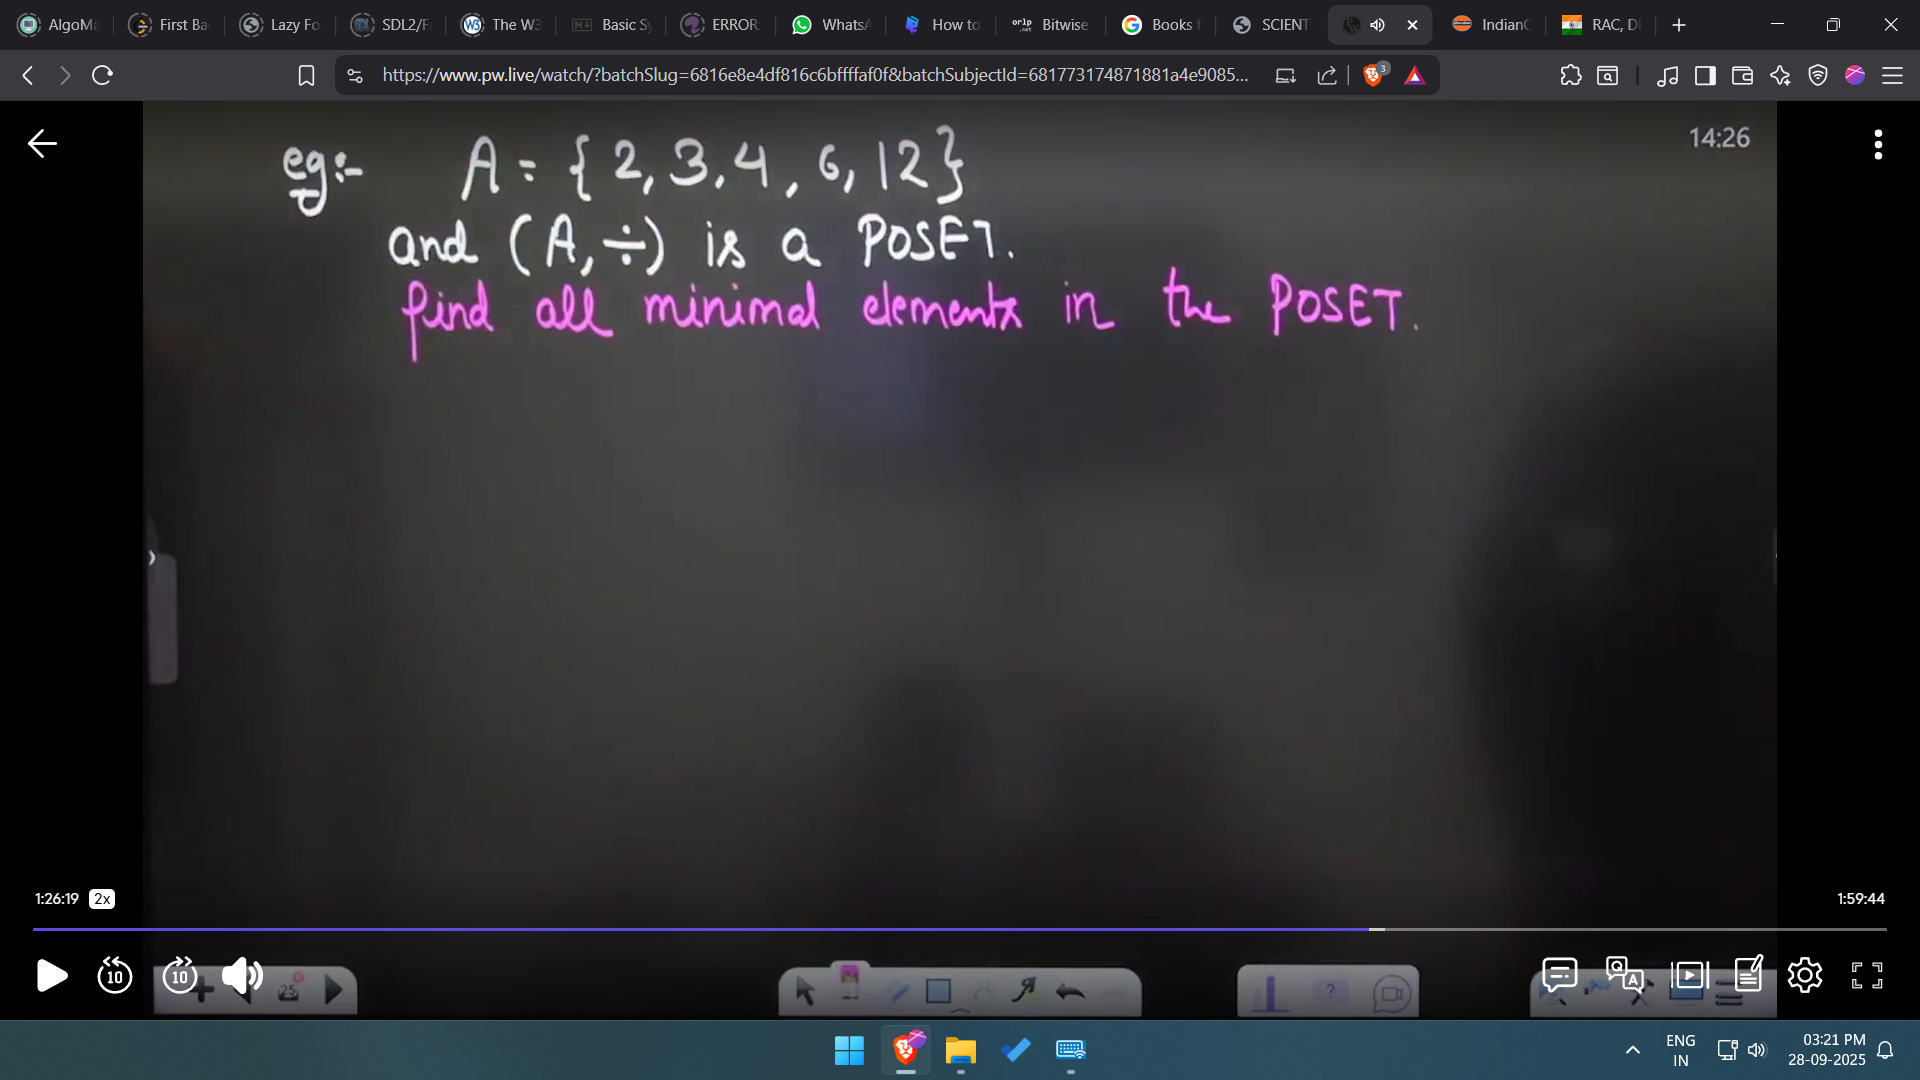 AlgoMa First Ba Lazy Fo SDL2/F The W3 Basic Sy ERROR: WhatsA How to Bitwise Books f SCIENT IndianC RAC, D
https://www.pw.live/watch/?batchSlug=6816e8e4df816c6bffffaf0f&batchSubjectId=681773174871881a4e9085... 3
14:26
eg:- A = { 2, 3, 4, 6, 12 }
and (A, ÷) is a POSET.
find all minimal elements in the POSET.
1:26:19 2x 1:59:44
10 10 25 ?
ENG 03:21 PM
IN 28-09-2025